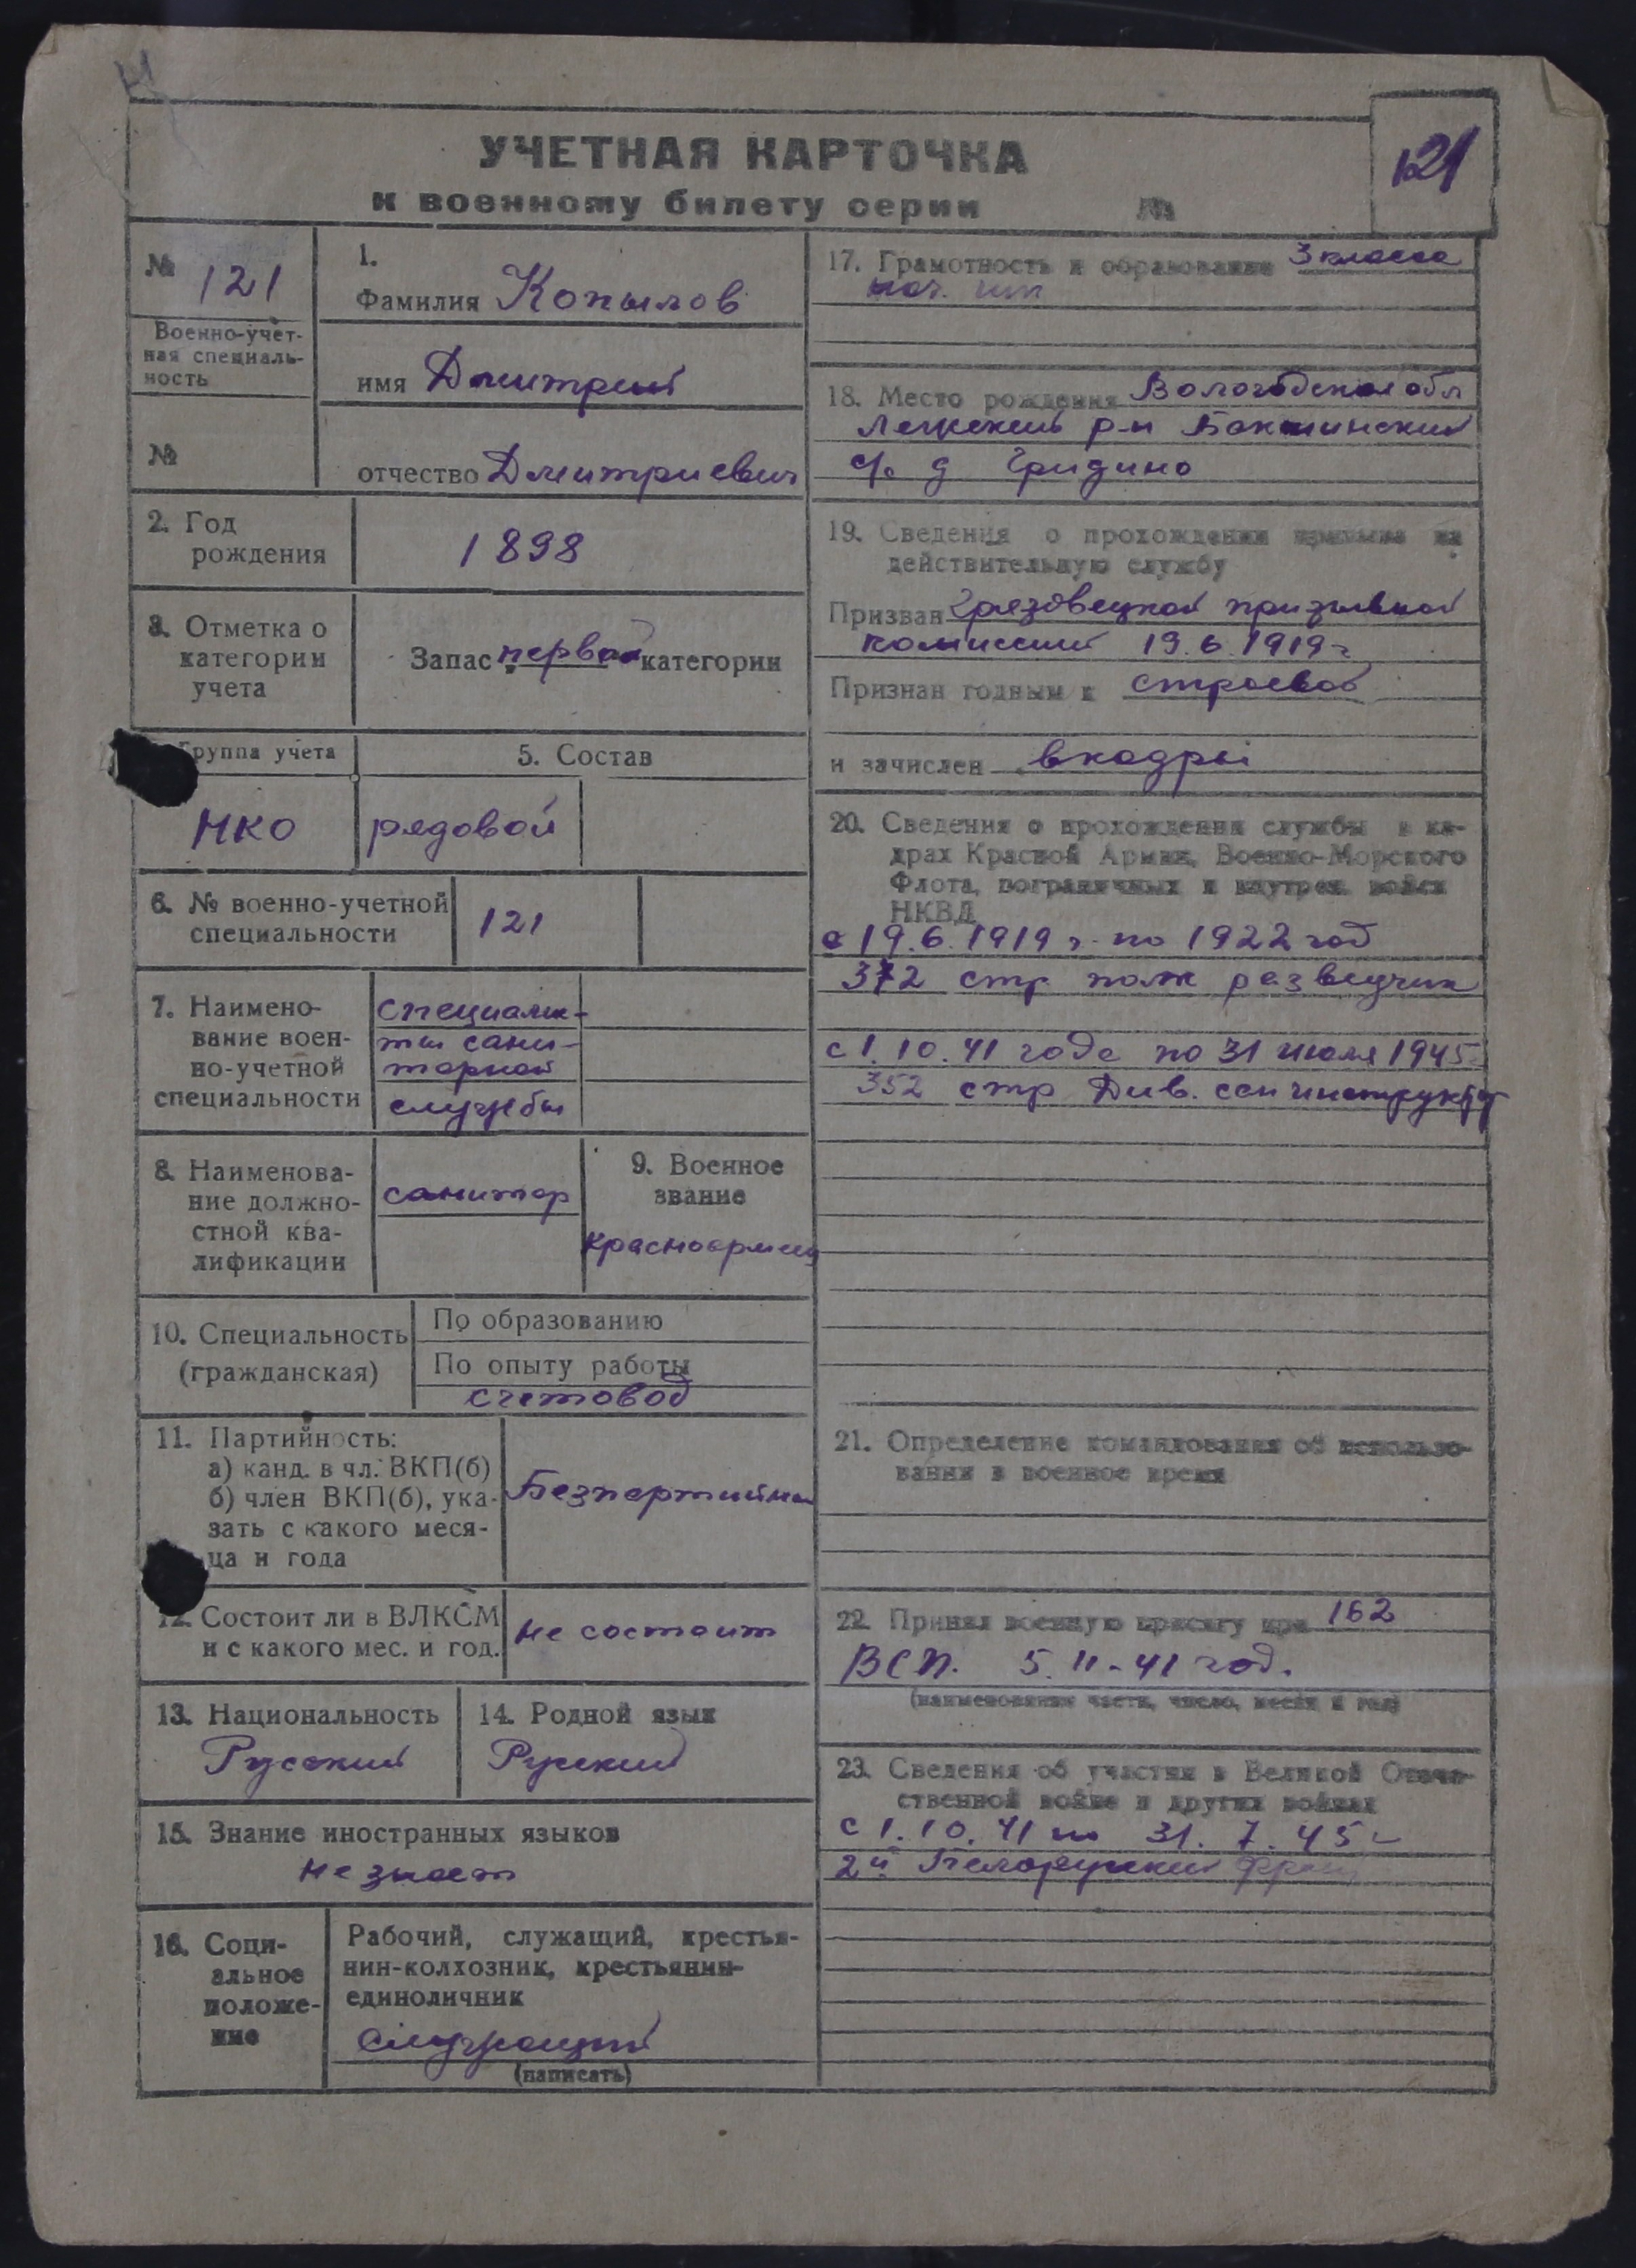 121
УЧЕТНАЯ КАРТОЧКА
к военному билету серии №
№ 121
Военно-учет-
ная специаль-
ность
№
1.
Фамилия Копылов
имя Дмитрий
отчество Дмитриевич
2. Год
рождения
1898
3. Отметка о
категории
учета
Запас первой категории
Группа учета
НКО
5. Состав
рядовой
6. № военно-учетной
специальности
121
7. Наимено-
вание воен-
но-учетной
специальности
специалис-
ты сани-
тарной
службы
8. Наименова-
ние должно-
стной ква-
лификации
санитар
9. Военное
звание
красноармеец
10. Специальность
(гражданская)
По образованию
По опыту работы
счетовод
11. Партийность:
а) канд. в чл. ВКП(б)
б) член ВКП(б), ука-
зать с какого меся-
ца и года
Безпартийный
12. Состоит ли в ВЛКСМ
и с какого мес. и год.
не состоит
13. Национальность
Русский
14. Родной язык
Русский
15. Знание иностранных языков
не знает
16. Соци-
альное
положе-
ние
Рабочий, служащий, крестья-
нин-колхозник, крестьянин-
единоличник
служащий
(написать)
17. Грамотность и образование 3 класса
нач.
18. Место рождения Вологодская обл
р-н
с/с д Гридино
19. Сведения о прохождении призыва на
действительную службу
Призван Грязовецкой призывной
комиссией 19.6.1919 г
Признан годным к строевой
и зачислен в кадры
20. Сведения о прохождении службы в ка-
драх Красной Армии, Военно-Морского
Флота, пограничных и внутрен. войск
НКВД
с 19.6.1919 г. по 1922 год
372 стр полк разведчик
с 1.10.41 года по 31 июля 1945
352 стр Див. сан инструктор
21. Определение командования об использо-
вании в военное время
22. Принял военную присягу при 162
ВСП. 5.11-41 год.
(наименование части, число, месяц и год)
23. Сведения об участии в Великой Отече-
ственной войне и других войнах
с 1.10.41 по 31.7.45 г
2й Белорусский фронт